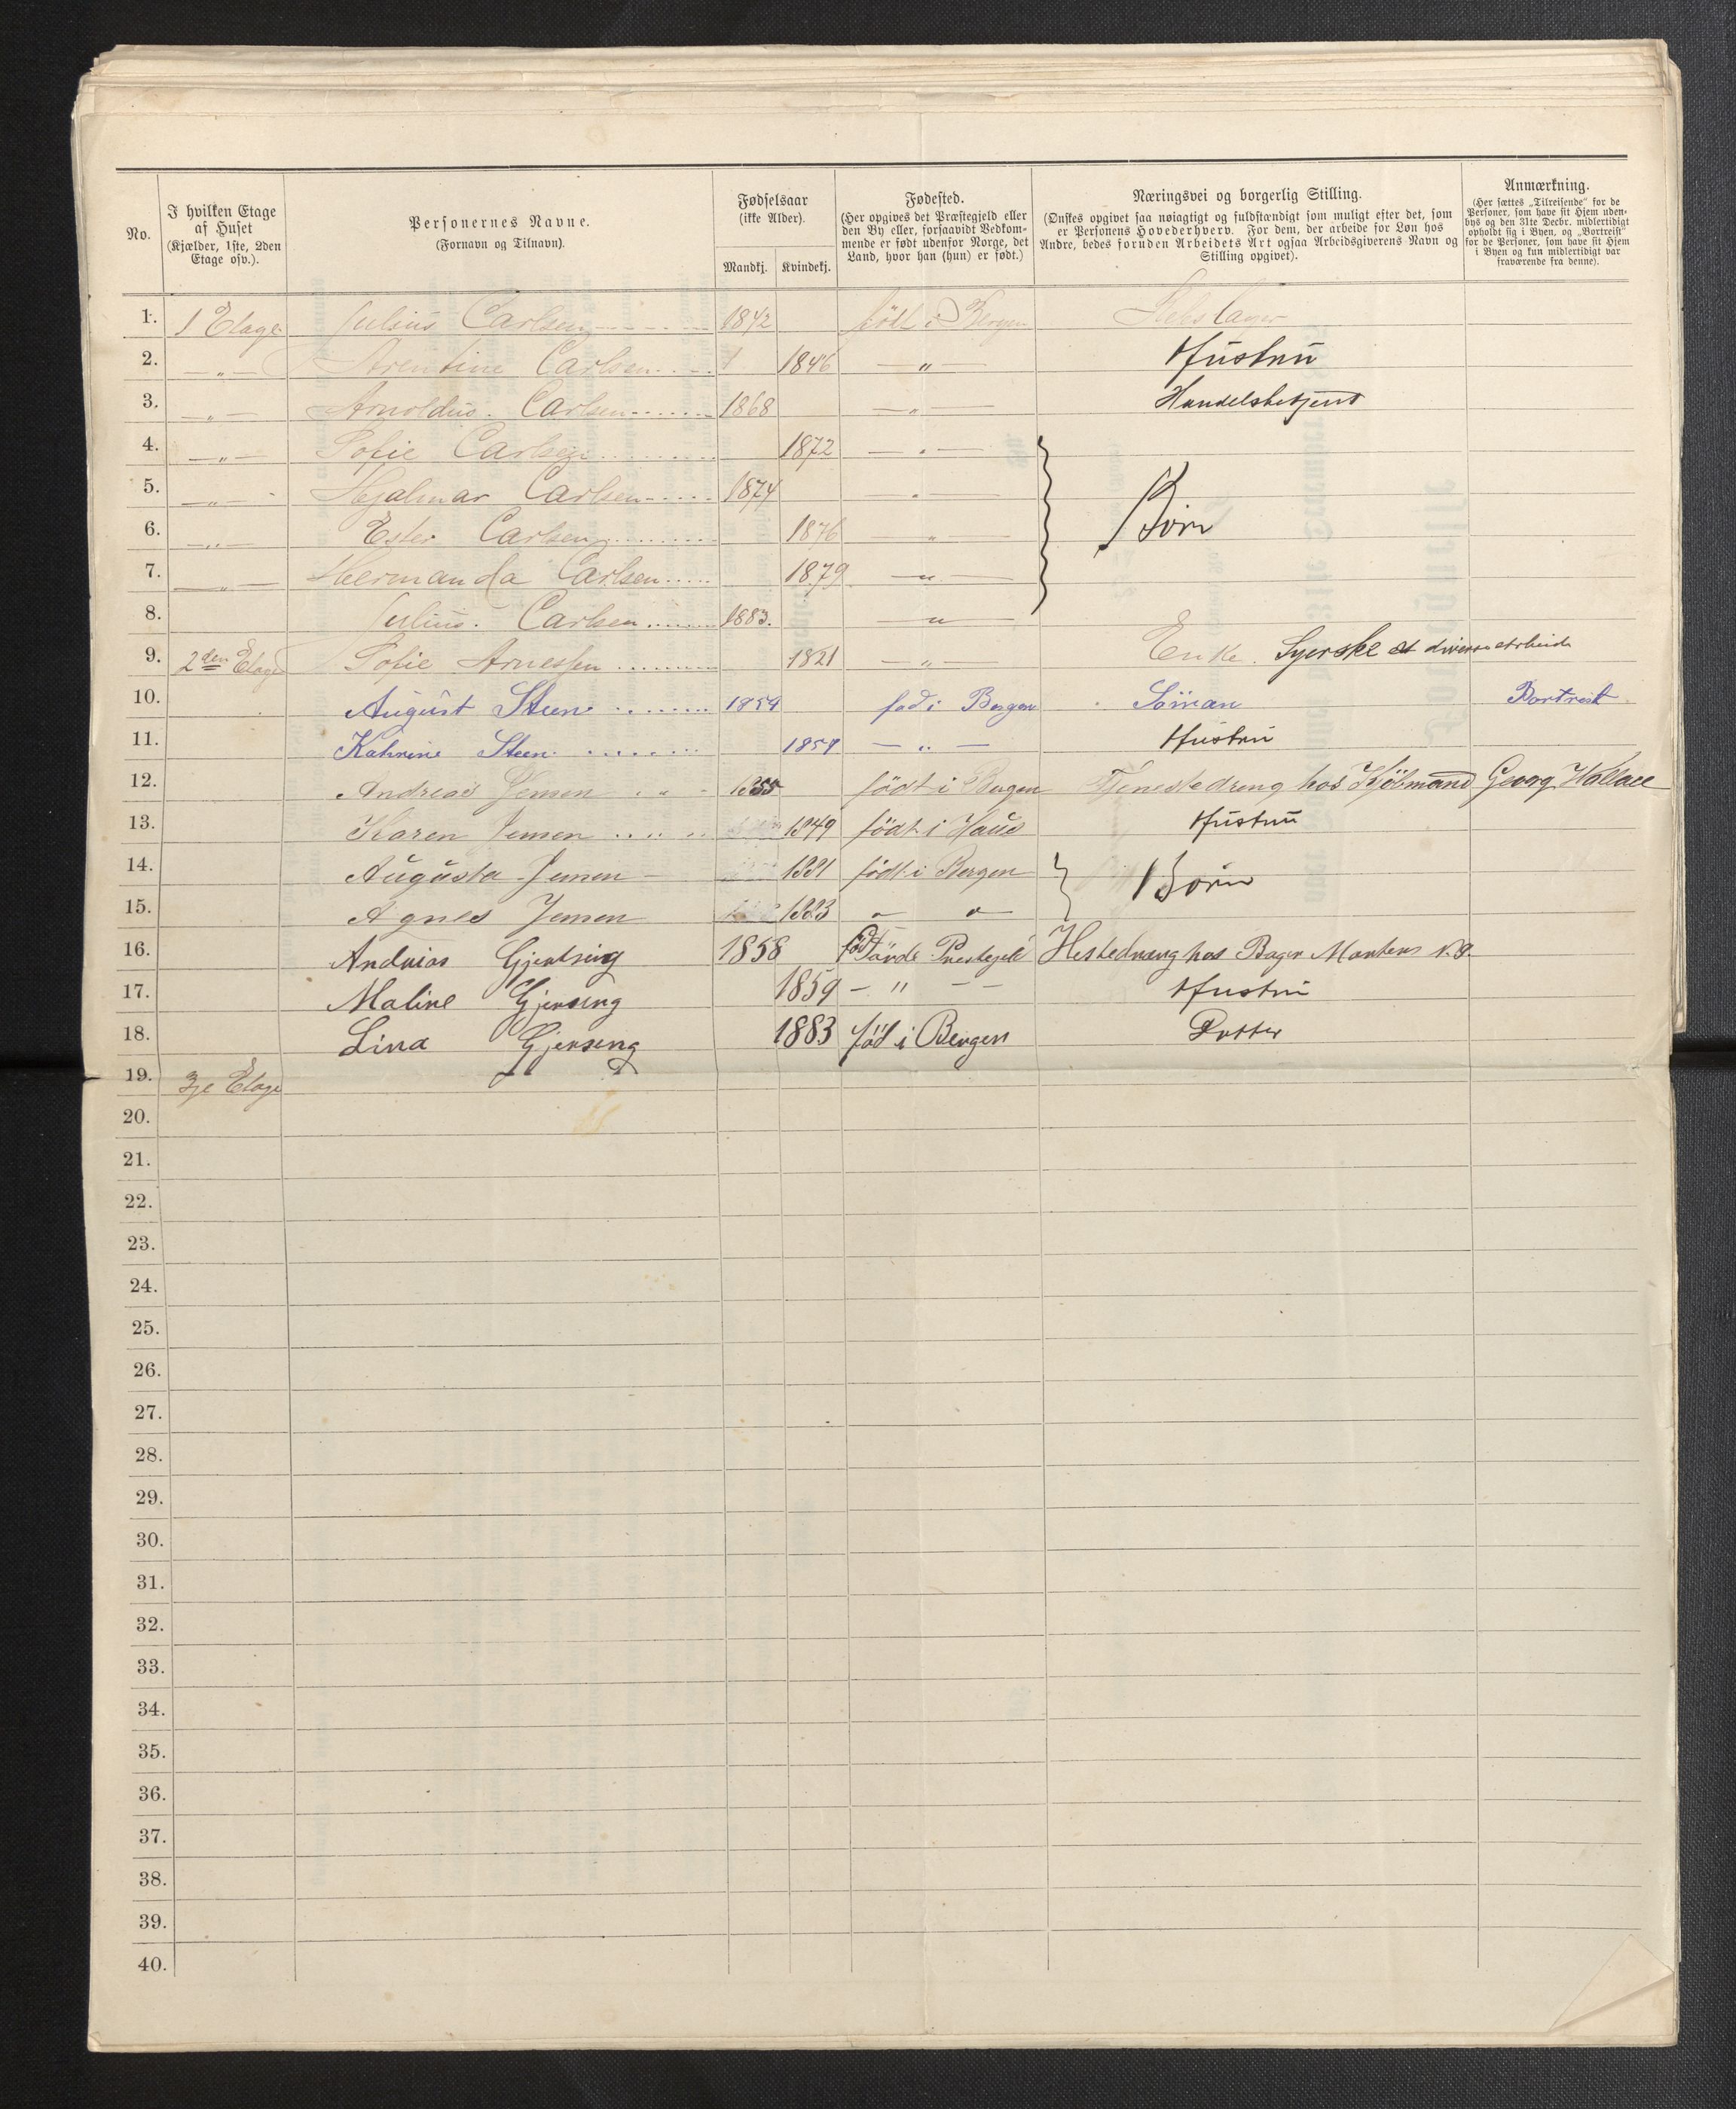 No.
I hvilken Etage af Huset (Kjælder, 1ste, 2den Etage osv.).
Personernes Navne. (Fornavn og Tilnavn).
Fødselsaar (ikke Alder). Mandkj. Kvindekj.
Fødested. (Her opgives det Præstegjeld eller den By eller, forsaavidt Vedkommende er født udenfor Norge, det Land, hvor han (hun) er født.)
Næringsvei og borgerlig Stilling. (Ønskes opgivet saa nøiagtigt og fuldstændigt som muligt efter det, som er Personens Hovederhverv. For dem, der arbeide for Løn hos Andre, bedes foruden Arbeidets Art ogsaa Arbeidsgiverens Navn og Stilling opgivet).
Anmærkning. (Her sættes „Tilreisende" for de Personer, som have sit Hjem udenbys og den 31te Decbr. midlertidigt opholdt sig i Byen, og „Bortreist" for de Personer, som have sit Hjem i Byen og kun midlertidigt var fraværende fra denne).
1. 1 Etage Julius Carlsen 1842 født i Bergen
2. — „ — Arentine Carlsen 1846 — „ — Hustru
3. — „ — Arnoldus. Carlsen 1868 — „ — Handelsbetjent
4. — „ — Sofie Carlsen 1872 — „ —
5. — „ — Hjalmar Carlsen 1874 — „ — Børn
6. — „ — Ester Carlsen 1876 — „ —
7. — „ — Hermanda Carlsen 1879 — „ —
8. Julius. Carlsen 1883. — „ —
9. 2den Etage Sofie Arnessen 1821 — „ — Enke. Syerske at diverse arbeide
10. August Steen 1859 fød i Bergen Söman Bortreist
11. Kahrine Steen 1859 — „ — Hustru
12. Andreas Jensen 1855 födt i Bergen Tjenestedreng hos Kjöbmand Georg Wallace
13. Karen Jensen 1849 födt i Haus Hustru
14. Augusta Jensen 1881 födt i Bergen Børn
15. Agnes Jensen 1883 „ „
16. Andreas Gjertsing 1858 föd Förde Prestegjel Hestedreng hos Bager Martens N.g.
17. Maline Gjensing 1859 — „ — — Hustru
18. Lina Gjensing 1883 föd i Bergen Dotter
19. 3je Etage
20.
21.
22.
23.
24.
25.
26.
27.
28.
29.
30.
31.
32.
33.
34.
35.
36.
37.
38.
39.
40.